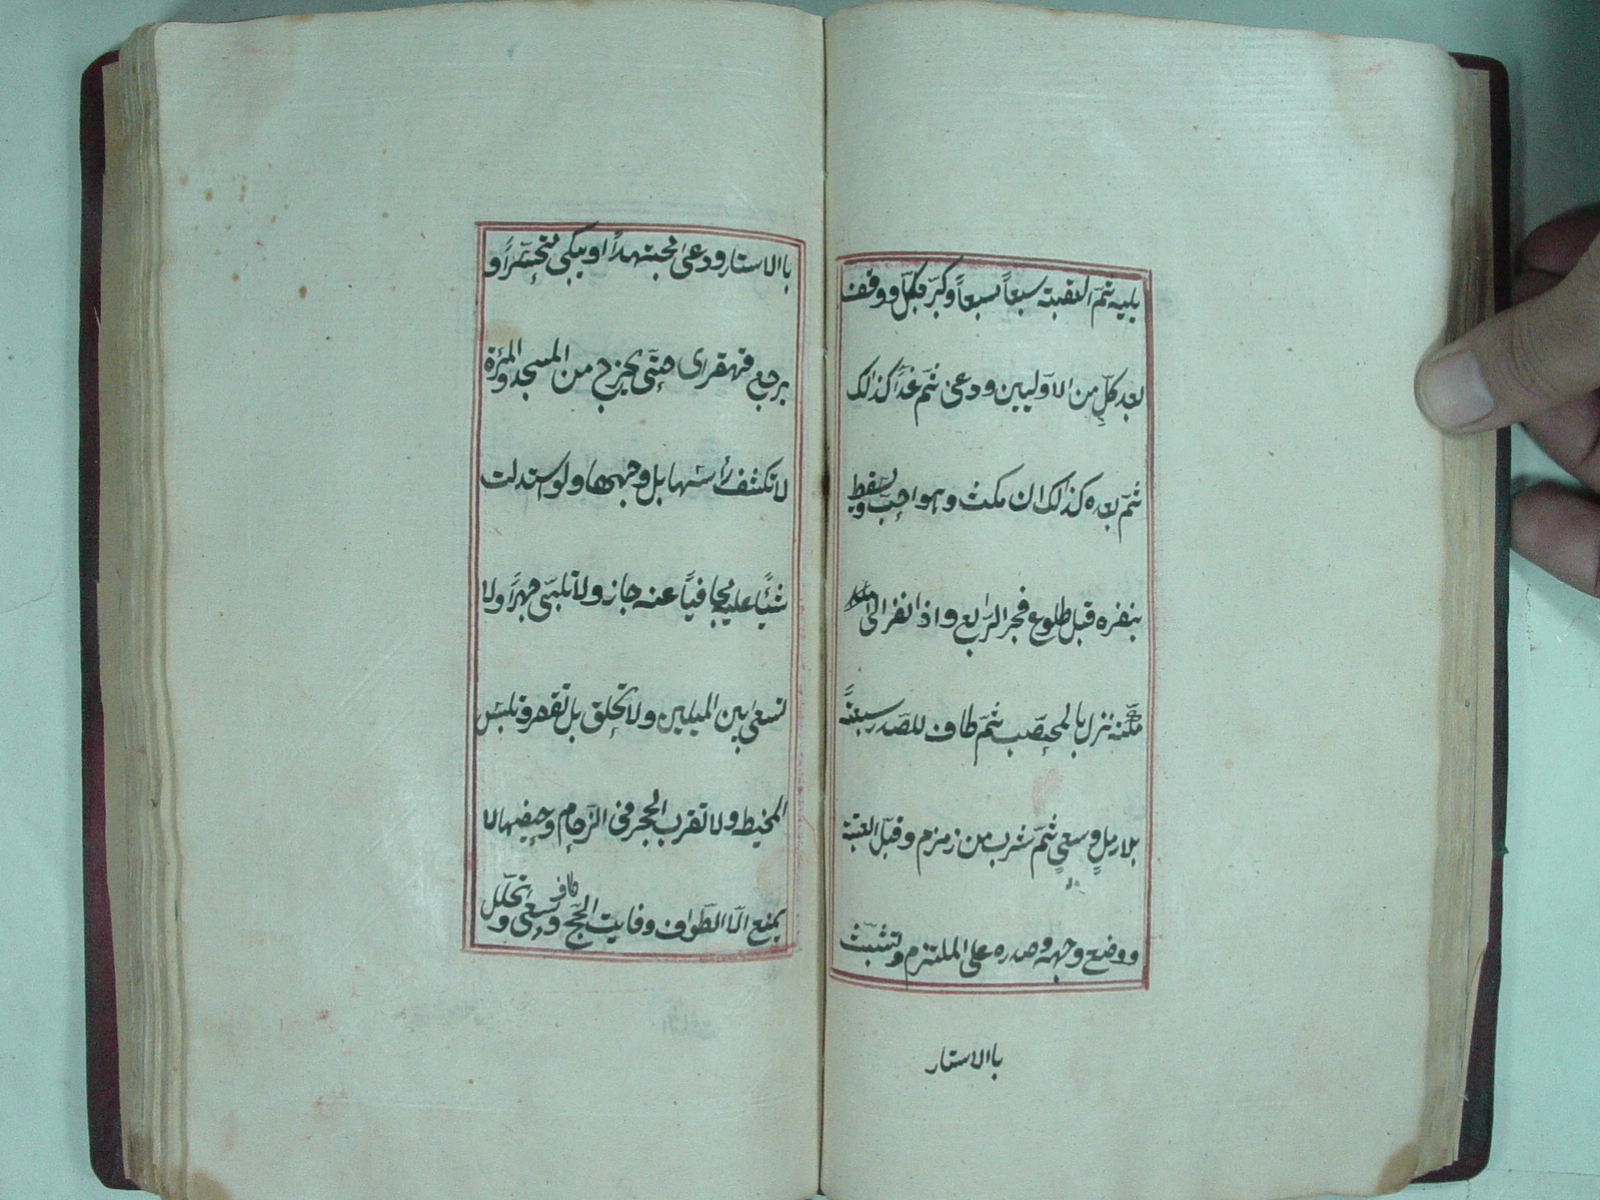 يليه ثمّ العقبة سبعاً سبعاً وكبّر بكلّ ووقف
بعد كلّ من الاوّليين ودعى ثمّ غداً كذالك
ثمّ بعده كذالك ان مكث وهو احبّ ويسقط
بنفره قبل طلوع فجر الرّابع واذا نفر الى
مكّة نزل بالمحصّب ثمّ طاف للصّدر سبعةً
بلا رملٍ وسعيٍ ثمّ شرب من زمزم وقبّل العتبة
ووضع وجهه وصدره على الملتزم وتشبّث
باالاستار
باالاستار ودعى مجتهداً او يبكى متحسّراً و
يرجع قهقرى حتّى يخرج من المسجد والمرٔة
لا تكشف رأسها بل وجهها ولو اسدلت
شئياً عليه مجافياً عنه جاز ولا تلبّى جهراً ولا
تسعى بين الميلين ولا تحلق بل تقصر وتلبس
المخيط ولا تقرب الحجر فى الزّحام وحيضها لا
يمنع الّا الطّواف وفايت الحجّ طاف وسعى وتحلّل